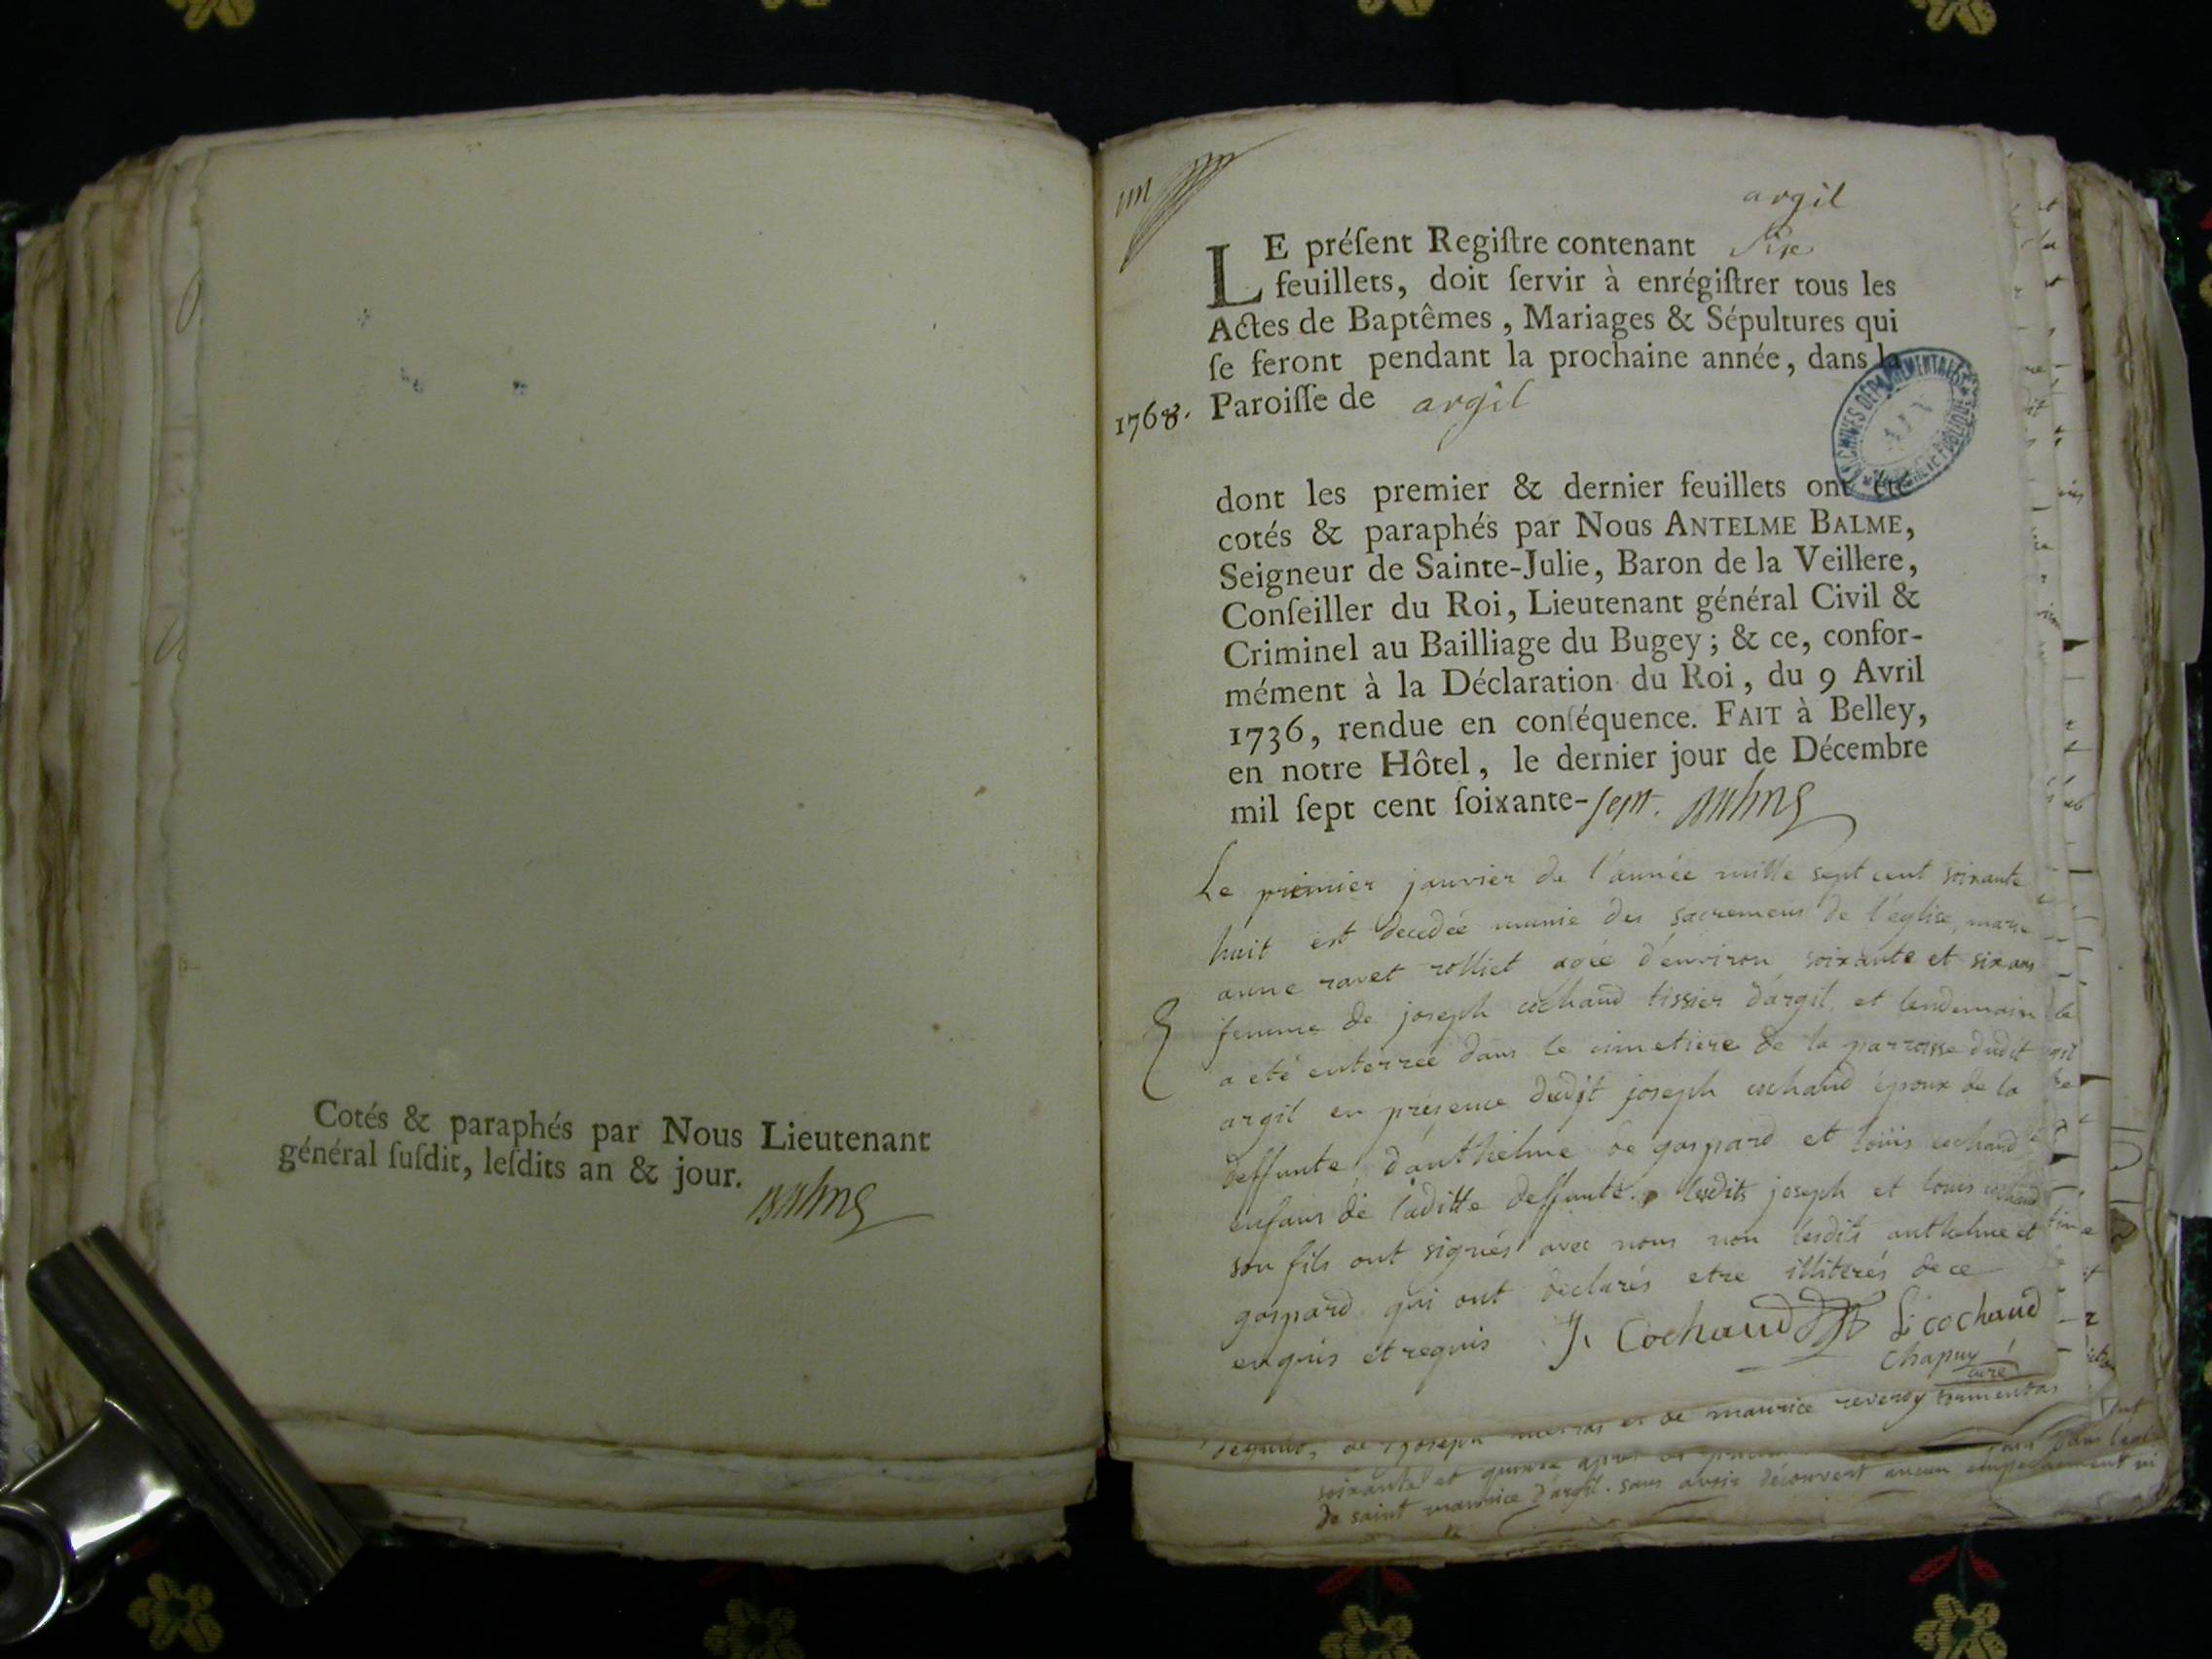 Cotés & paraphés par Nous Lieutenant
général ſuſdit, leſdits an & jour.
Balme
un
argil
LE préſent Regiſtre contenant Six
feuillets, doit ſervir à enrégiſtrer tous les
Actes de Baptêmes, Mariages & Sépultures qui
ſe feront pendant la prochaine année, dans la
1768. Paroiſſe de argil
ARCHIVES DEPARTEMENTALES
AIN
dont les premier & dernier feuillets ont été
cotés & paraphés par Nous ANTELME BALME,
Seigneur de Sainte-Julie, Baron de la Veillere,
Conſeiller du Roi, Lieutenant général Civil &
Criminel au Bailliage du Bugey; & ce, confor-
mément à la Déclaration du Roi, du 9 Avril
1736, rendue en conſéquence. FAIT à Belley,
en notre Hôtel, le dernier jour de Décembre
mil ſept cent ſoixante-sept. Balme
Le primier janvier de l'année mille sept cent soixante
huit est decedée munie des sacremens de l'eglise, marie
anne ravet rolliet agée d'environ soixante et six ans
femme de joseph cochaud tissier d'argil et lendemain
a eté enterrée dans le cimetiere de la parroisse dudit
argil en presence dudit joseph cochaud époux de la
deffunte, d'anthelme de gaspard et loüis cochaud
enfans de laditte deffunte. lesdits joseph et louis cochaud
son fils ont signés avec nous non lesdits anthelme et
gaspard qui ont declarés etre illiterés de ce
enquis et requis J. Cochaud L. cochaud
Chapuy curé
de joseph et de maurice reverdy
soixante et quinze
de saint maurice d'argil. sans avoir découvert aucun empechement ni